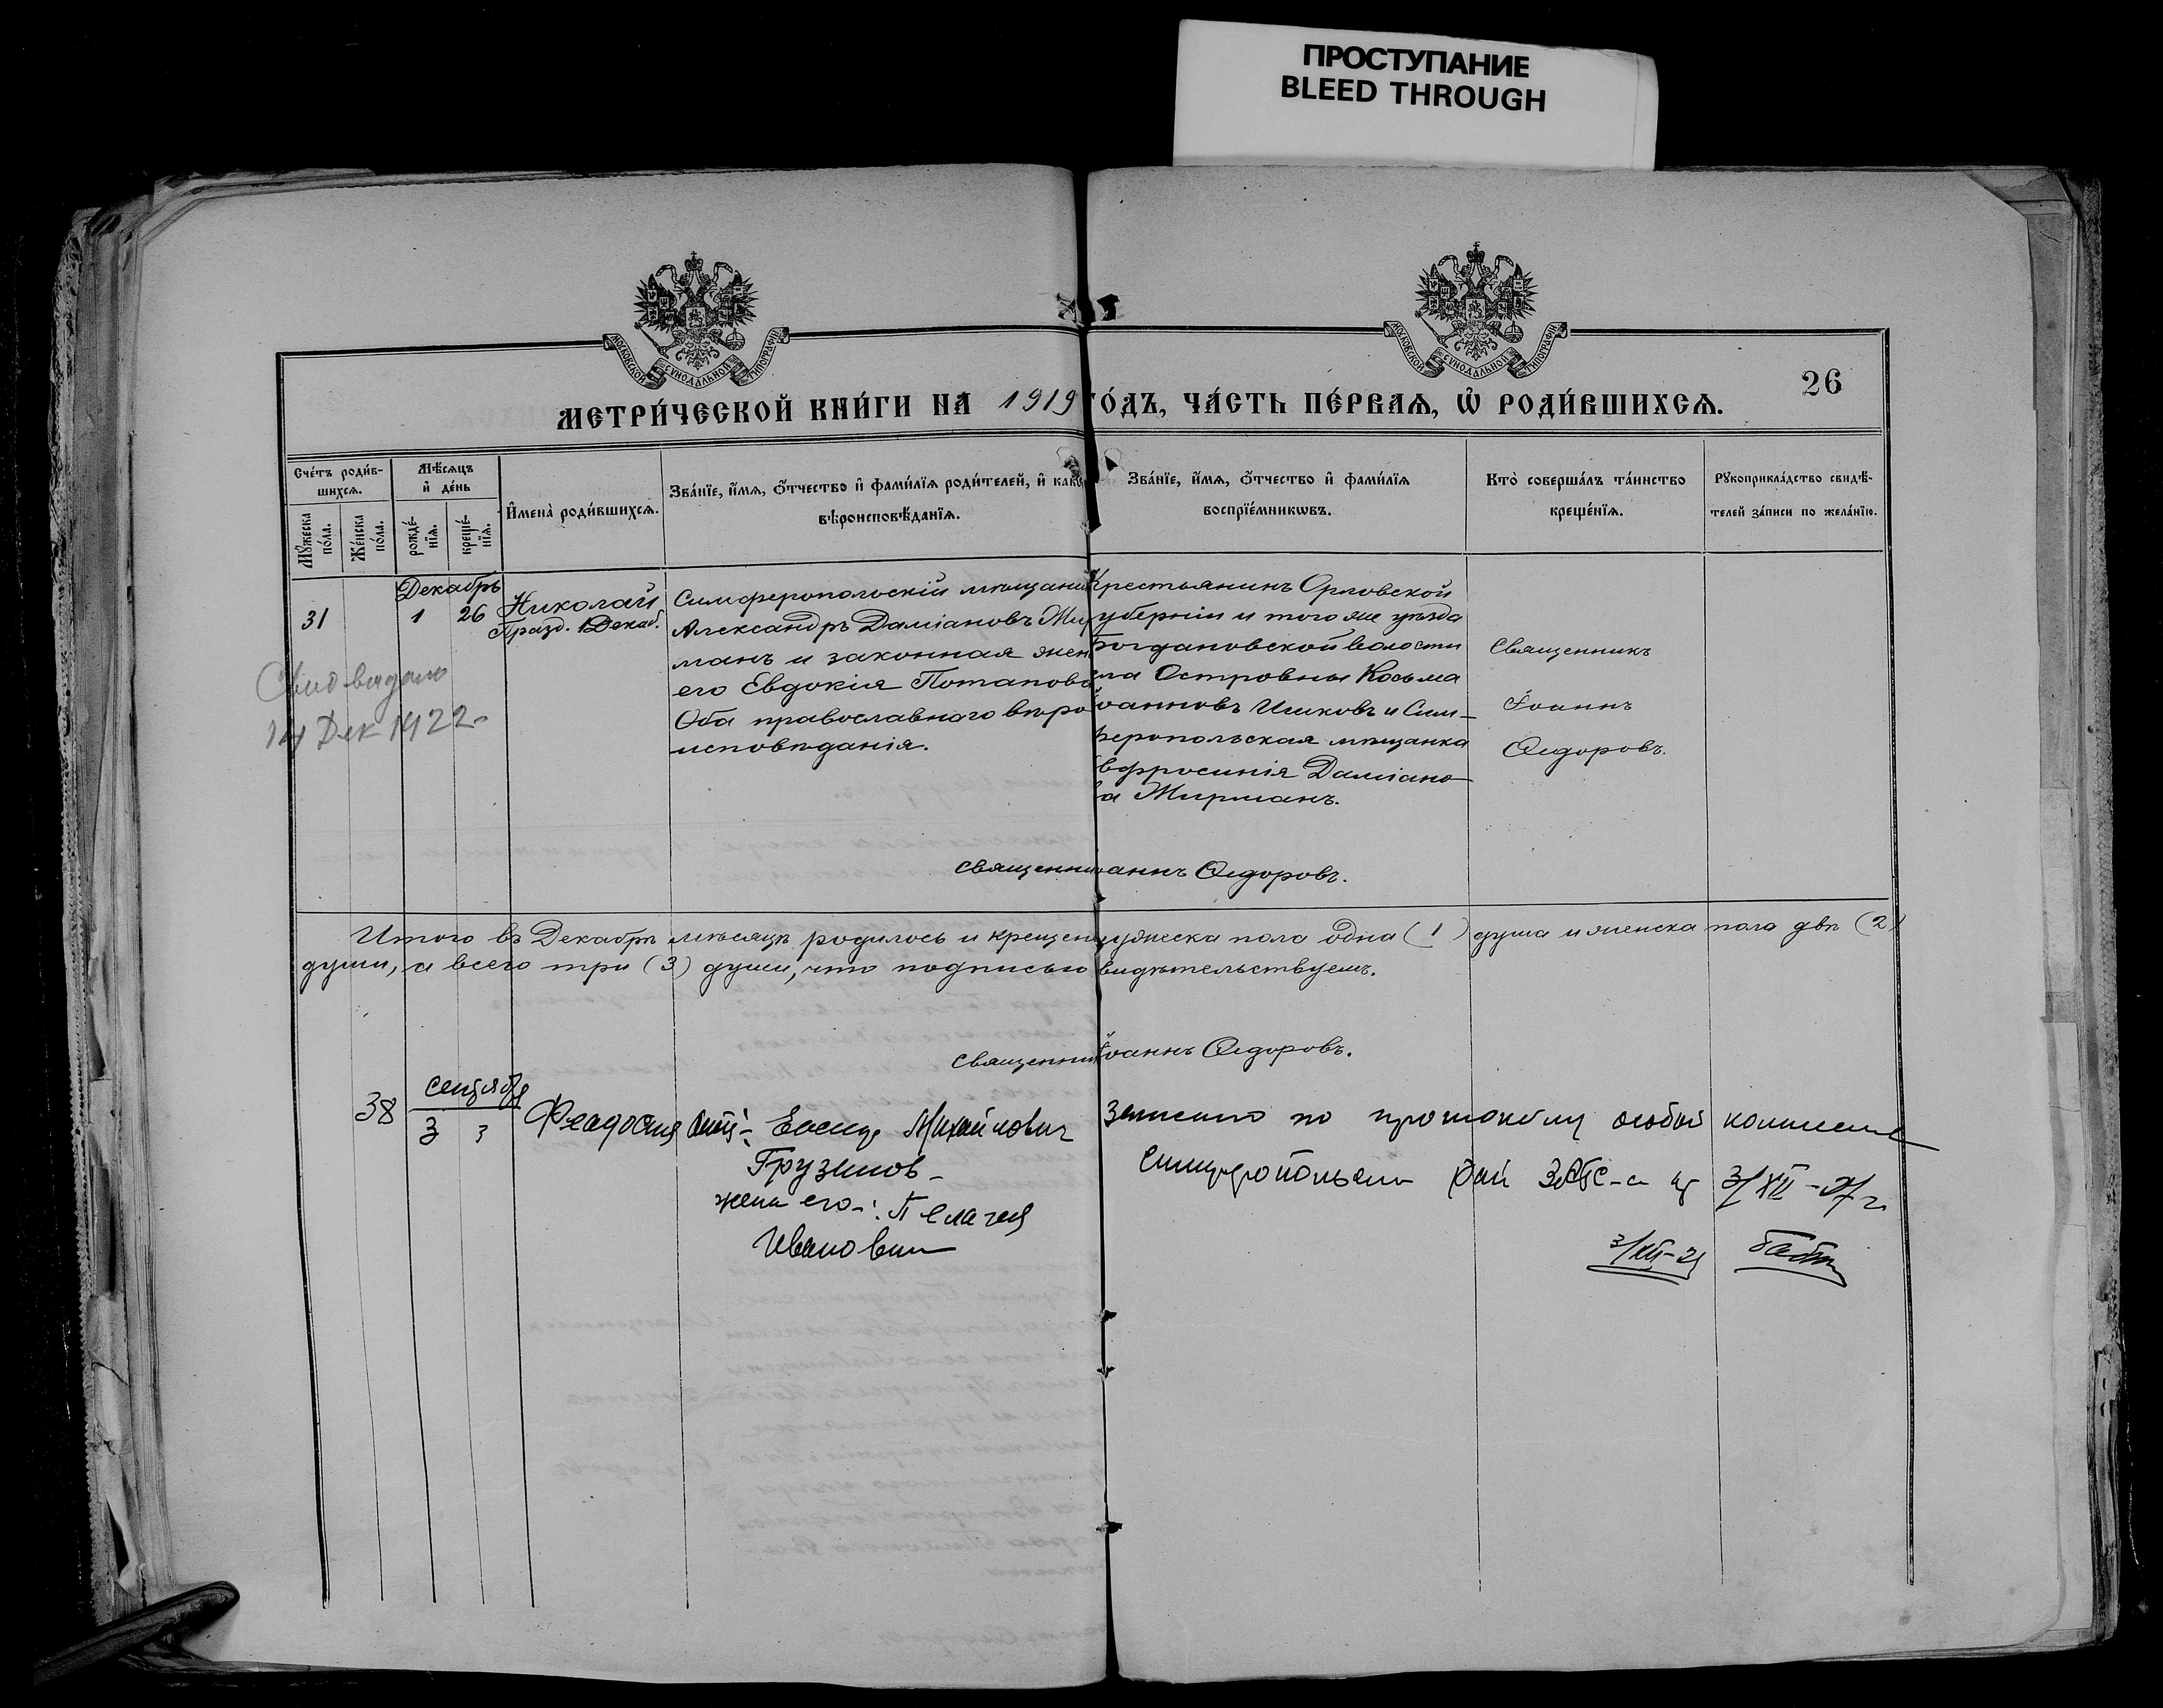 ПРОСТУПАНИЕ
BLEED THROUGH
МОСКОВСКОЙ СУНОДАЛЬНОЙ ТИПОГРАФІИ
МОСКОВСКОЙ СУНОДАЛЬНОЙ ТИПОГРАФІИ
26
МЕТРИ́ЧЕСКОЙ КНИ́ГИ НА 1919 ГО́ДЪ, ЧА́СТЬ ПЕ́РВАѦ, Ѡ҆ РОДИ́ВШИХСѦ.
Сче́тъ роди́в-
шихсѧ.
Мꙋ́жеска по́ла.
Же́нска по́ла.
Мѣ́сѧцъ
и҆ де́нь
рожде́-
нїѧ.
креще́-
нїѧ.
И҆мена̀ роди́вшихсѧ.
Зва́нїе, и҆́мѧ, ѻ҆́тчество и҆ фами́лїѧ роди́телей, и҆ како
вѣроисповѣ́данїѧ.
Зва́нїе, и҆́мѧ, ѻ҆́тчество и҆ фами́лїѧ
воспрїе́мникѡвъ.
Кто̀ соверша́лъ та́инство
креще́нїѧ.
Рꙋкоприкла́дство свидѣ́-
телей за́писи по жела́нїю.
Декабрь
31
1
26
Николай
Празд. 1 Декаб.
Симферопольскій мѣщани
Александръ Даміановъ Жи
манъ и законная жен
его Евдокія Потапова
Оба православного вѣро
исповѣданія.
Крестьянинъ Орловской
губерніи и того же уѣзда
Богдановской волости
ла Островны Косьма
Іоанновъ Ишковъ и Сим-
феропольская мѣщанка
Евфросинія Даміано-
ва Жирманъ.
Священникъ
Іоаннъ
Ѳедоровъ.
Свид выдано
14 Дек 1922
Священни оаннъ Ѳедоровъ.
Итого въ Декабрѣ мѣсяцѣ родилось и крещен мужеска пола одна (1) душа и женска пола двѣ (2)
души, а всего три (3) души, что подписью свидѣтельствуемъ.
Священни Іоаннъ Ѳедоровъ.
38
сентября
3
3
Феодосия
Михайлович
Грузинов
жена его-: Пелагея
Ивановна
Записано по протокому особой комиссии
Рай ЗАГС-а 3/XII-